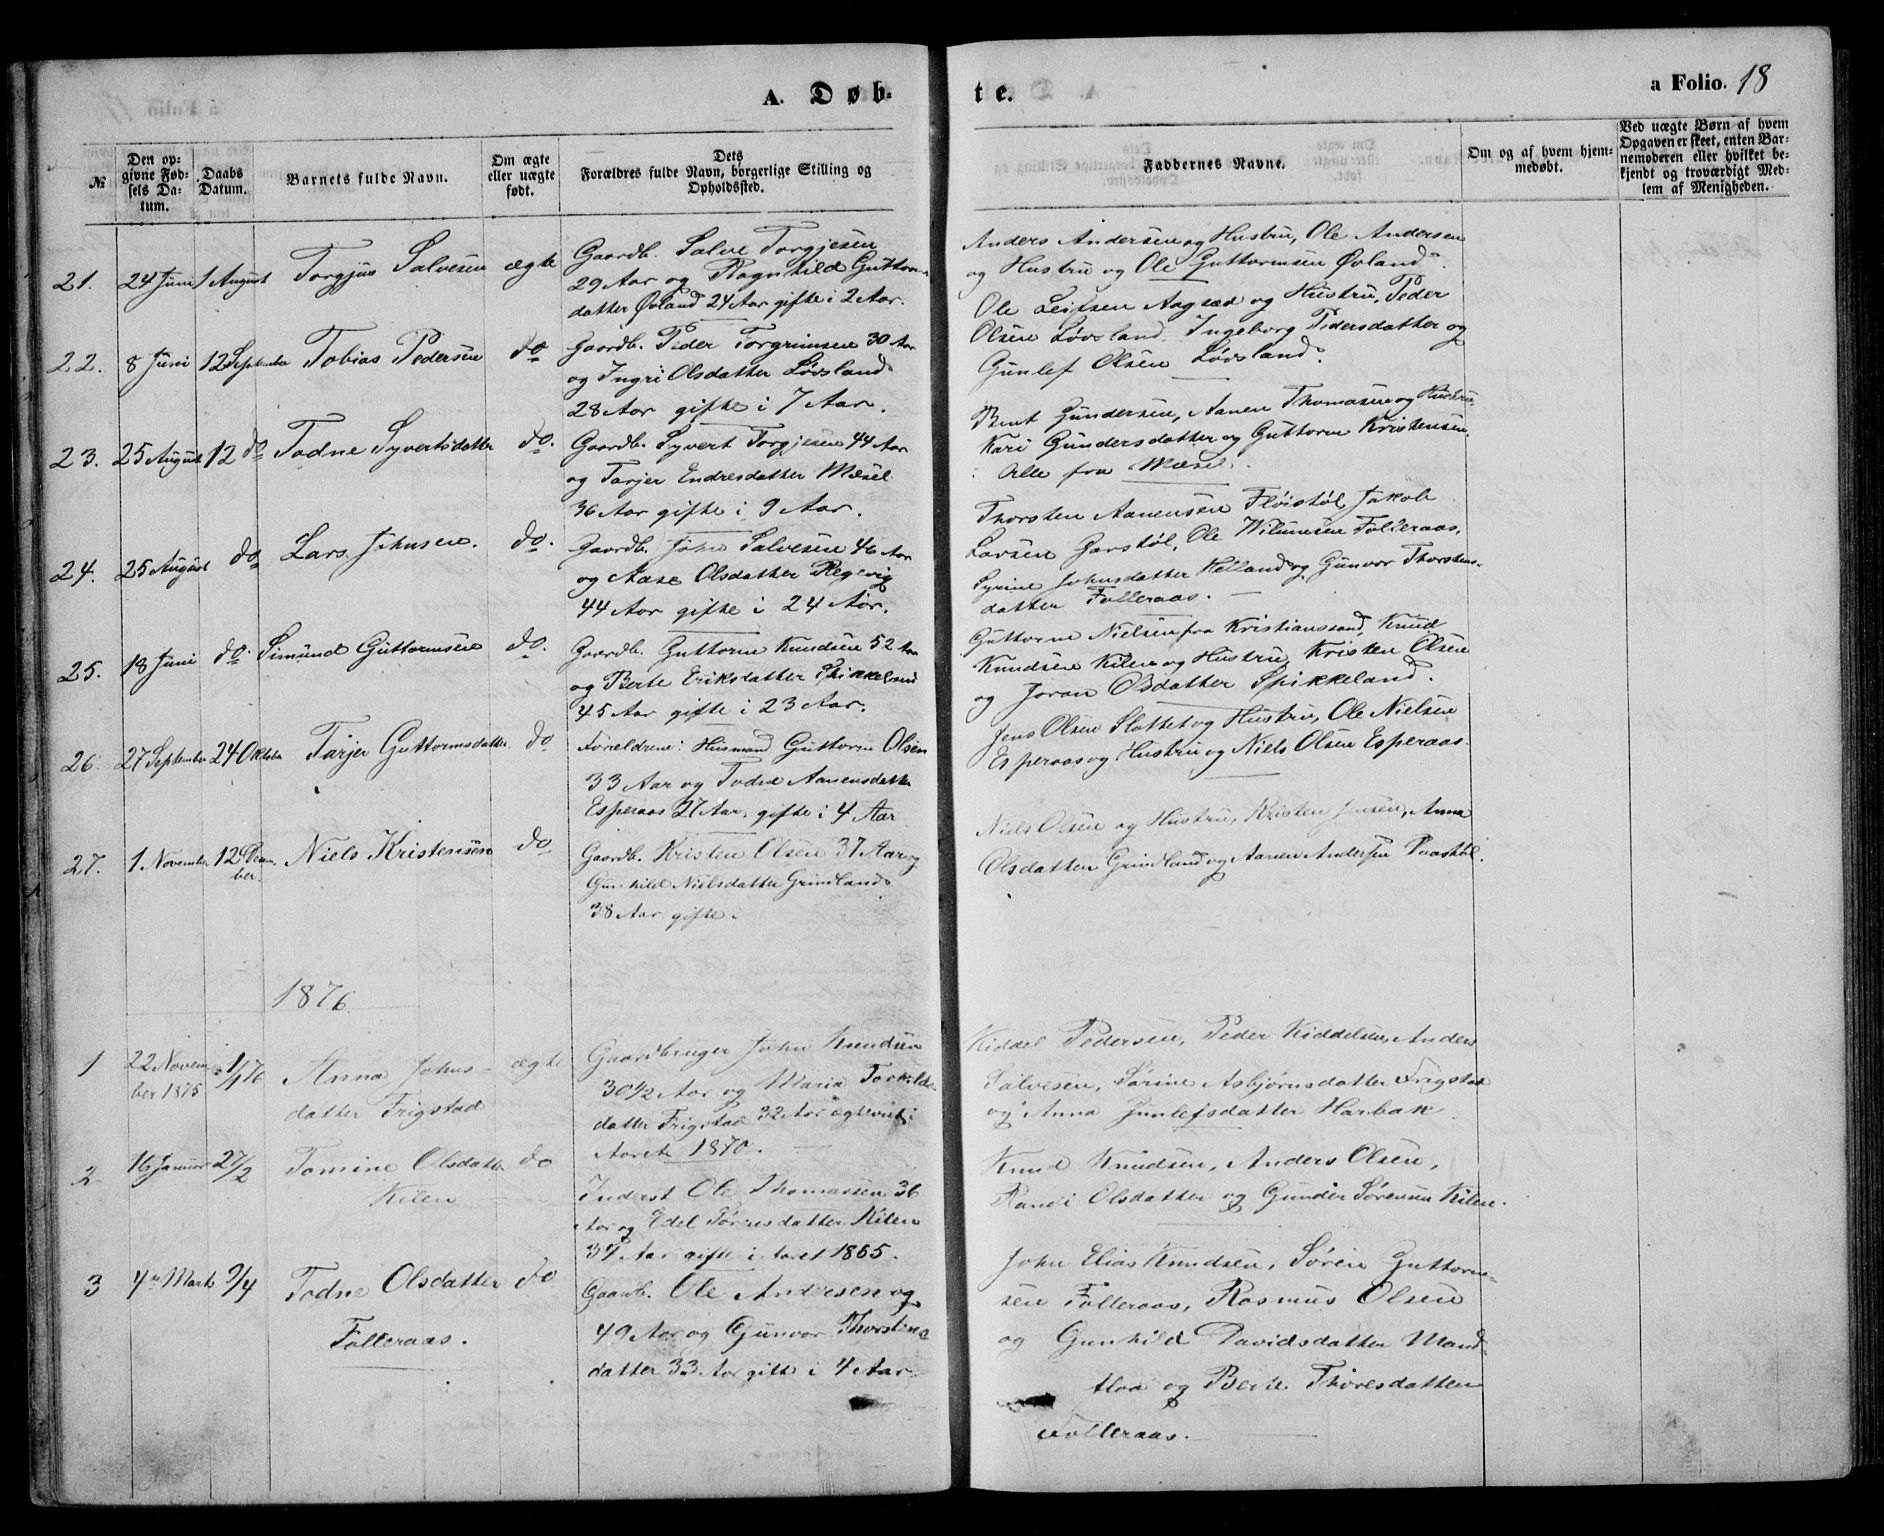 A. Døb-
te.
a Folio. 18
№
Den op-
givne Fød-
sels Da-
tum.
Daabs
Datum.
Barnets fulde Navn.
Om ægte
eller uægte
født.
Dets
Forældres fulde Navn, borgerlige Stilling og
Opholdssted.
Faddernes Navne.
Om og af hvem hjem-
medøbt.
Ved uægte Børn af hvem
Opgaven er skeet, enten Bar-
nemoderen eller hvilket be-
kjendt og troværdigt Med-
lem af Menigheden.
21. 24 Juni 1 August Torgjus Salvesen ægte
Gaardb. Salve Torgjesen
29 Aar og Ragnhild Guttorms
datter Øvland 24 Aar gifte i 2 Aar.
Anders Andersen og Hustru, Ole Andersen
og Hustru og Ole Guttormsen Øvland.
22. 8 Juni 12 September Tobias Pedersen do
Gaardb. Peder Torgrimsen 30 Aar
og Ingri Olsdatter Løvsland
28 Aar gifte i 7 Aar.
Ole Leifsen Aagsæd og Hustru, Peder
Olsen Løvsland. Ingeborg Pedersdatter og
Gunlef Olsen Løvsland.
23. 25 August 12 do Todne Syvertsdatter do.
Gaardb. Syvert Torgjesen 44 Aar
og Tarjer Endresdatter Mæsel
36 Aar gifte i 9 Aar.
Bent Gundersen, Aanen Thomasen og Hustru,
Kari Gundersdatter og Guttorm Kristensen.
Alle fra Mæsel.
24. 25 August do Lars Johnsen. do.
Gaardb. John Salvesen 46 Aar
og Aase Olsdatter Regevig
44 Aar gifte i 24 Aar.
Thorsten Aanensen Fløistøl, Jakob
Larsen Garstøl, Ole Wilumsen Folleraas,
Syrine Johnsdatter Helland og Gunvor Thorstens-
datter Folleraas.
25. 18 Juni do. Simund Guttormsen do.
Gaardb. Guttorm Knudsen 52 Aar
og Berte Eriksdatter Spikkeland
45 Aar gifte i 23 Aar.
Guttorm Nielsen fra Kristianssand, Knud
Knudsen Kilen og Hustru, Kristen Olsen
og Joran Olsdatter Spikkeland.
26. 27 September 24 Oktober Tarjer Guttormsdatter do
Forældrene: Husmand Guttorm Olsen
33 Aar og Todne Aanensdatter
Esperaas 27 Aar, gifte i 4 Aar
Jens Olsen Slottet og Hustru, Ole Nielsen
Esperaas og Hustru og Niels Olsen Esperaas.
27. 1 November 12 Decem- Niels Kristensen do
ber.
Gaardb. Kristen Olsen 37 Aar og
Gunhild Nielsdatter Grindland
38 Aar gifte i
Niels Olsen og Hustru, Kristen Jensen, Anna
Olsdatter Grindland og Aanen Andersen Paastøl.
1876
1 22 Novem- 1/1 76 Anna Johns- ægte
ber 1875 datter Frigstad
Gaardbruger John Knudsen
30 1/2 Aar og Maria Torkilds-
datter Frigstad 32 Aar ægteviet i
Aaret 1870.
Kiddel Pedersen, Peder Kiddelsen, Anders
Salvesen, Sørine Asbjørnsdatter Frigstad
og Anna Gunlefsdatter Harbak
2 16 Januar 27/2 Tomine Olsdatter do
Kilen
Inderst Ole Thomassen 36
Aar og Edel Tørresdatter Kilen
37 Aar gifte i Aaret 1865.
Knud Knudsen, Anders Olsen,
Randi Olsdatter og Gunder Sørensen Kilen.
3 4de Marts 9/4 Todne Olsdatter do
Folleraas.
Gaardb. Ole Andersen og
49 Aar og Gunvor Thorstens
datter 33 Aar gifte i 4 Aar.
John Elias Knudsen, Søren Guttorm-
sen Folleraas, Rasmus Olsen
og Gunhild Davidsdatter Mand-
flaa og Berte Thoresdatter
Folleraas.